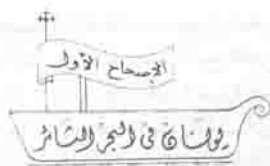 الإصحاح الأول
يونان فى البحر الثائر